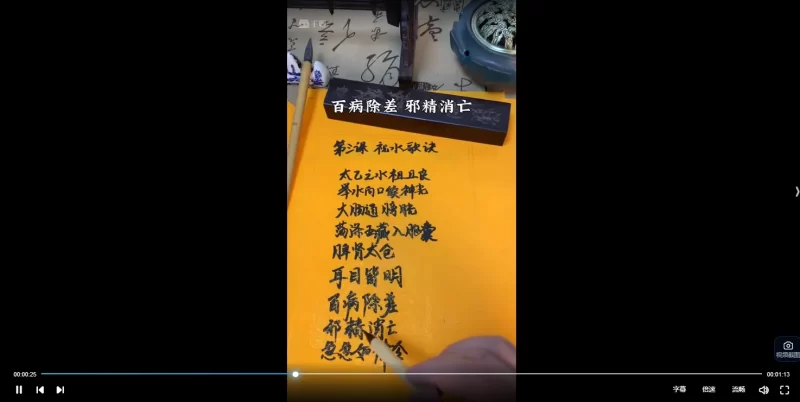 百病除差 邪精消亡
第三课 祝水歌诀
太乙之水祖且良
举水向口续神光
大肠通膀胱
荡涤五藏入胞囊
脾肾太仓
耳目皆明
百病除差
邪精消亡
急急如律令
00:00:25
00:01:13
字幕
倍速
流畅
视频截图